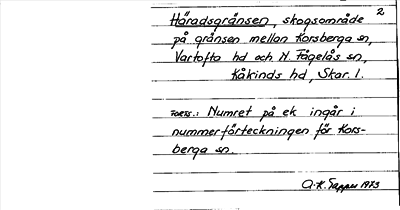 2
Häradsgränsen, skogsområde
på gränsen mellan Korsberga sn,
Vartofta hd och N. Fågelås sn,
Kåkinds hd, Skar. l.
Forts.: Numret på ek ingår i
nummerförteckningen för Kors-
berga sn.
O.K. Tapper 1973